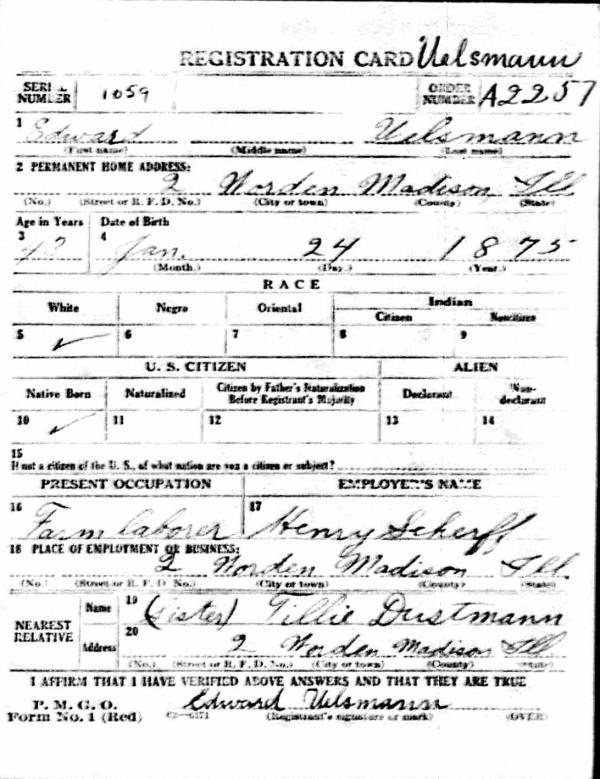 REGISTRATION CARD Uelsmann
SERIAL NUMBER 1059 ORDER NUMBER A2257
1 Edward Uelsmann
(First name) (Middle name) (Last name)
2 PERMANENT HOME ADDRESS:
2 Worden Madison Ill
(No.) (Street or R. F. D. No.) (City or town) (County) (State)
Age in Years Date of Birth
3 43 4 Jan. 24 1875
(Month.) (Day.) (Year.)
RACE
White Negro Oriental Indian
Citizen Noncitizen
5 ✓ 6 7 8 9
U. S. CITIZEN ALIEN
Native Born Naturalized Citizen by Father's Naturalization Before Registrant's Majority Declarant Non-declarant
10 ✓ 11 12 13 14
15
If not a citizen of the U. S., of what nation are you a citizen or subject?
PRESENT OCCUPATION EMPLOYER'S NAME
16 Farm laborer 17 Henry Scherff
18 PLACE OF EMPLOYMENT OR BUSINESS:
2 Worden Madison Ill
(No.) (Street or R. F. D. No.) (City or town) (County) (State)
NEAREST RELATIVE Name 19 (Sister) Tillie Dustmann
Address 20 2 Worden Madison Ill
(No.) (Street or R. F. D. No.) (City or town) (County) (State)
I AFFIRM THAT I HAVE VERIFIED ABOVE ANSWERS AND THAT THEY ARE TRUE
P. M. G. O.
Form No. 1 (Red) Edward Uelsmann
(Registrant's signature or mark) (OVER)